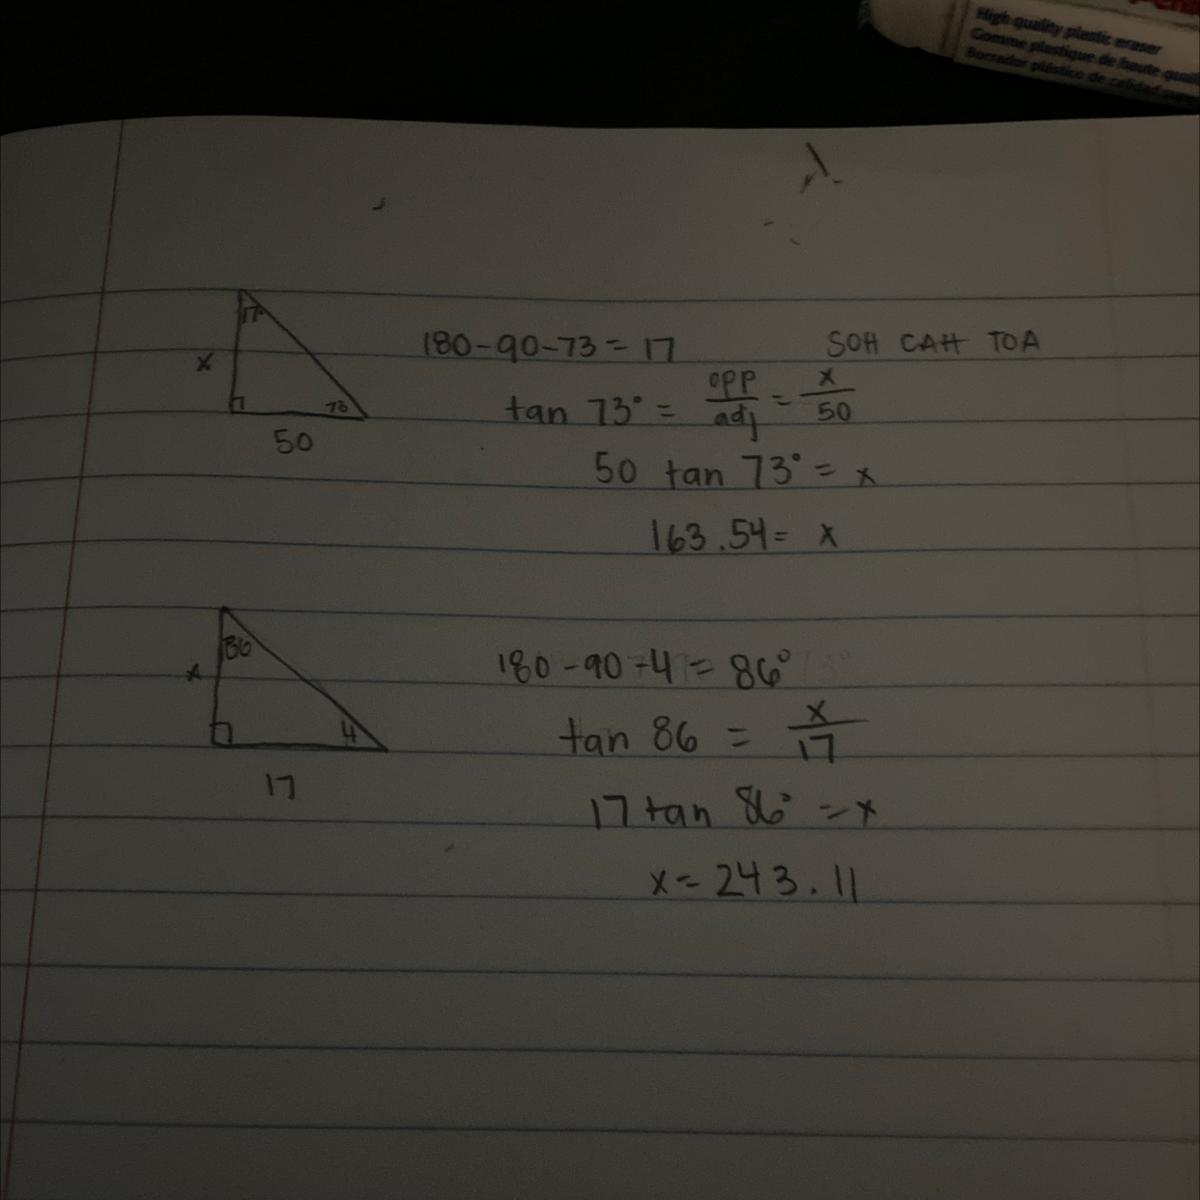 High quality plastic eraser
Gomme plastique de haute qualit
Borrador plástico de calidad
17°
x
73
50
180-90-73=17
SOH CAH TOA
tan 73° = opp/adj = x/50
50 tan 73° = x
163.54= x
86
x
4
17
180-90-4= 86°
tan 86 = x/17
17 tan 86° = x
x= 243.11